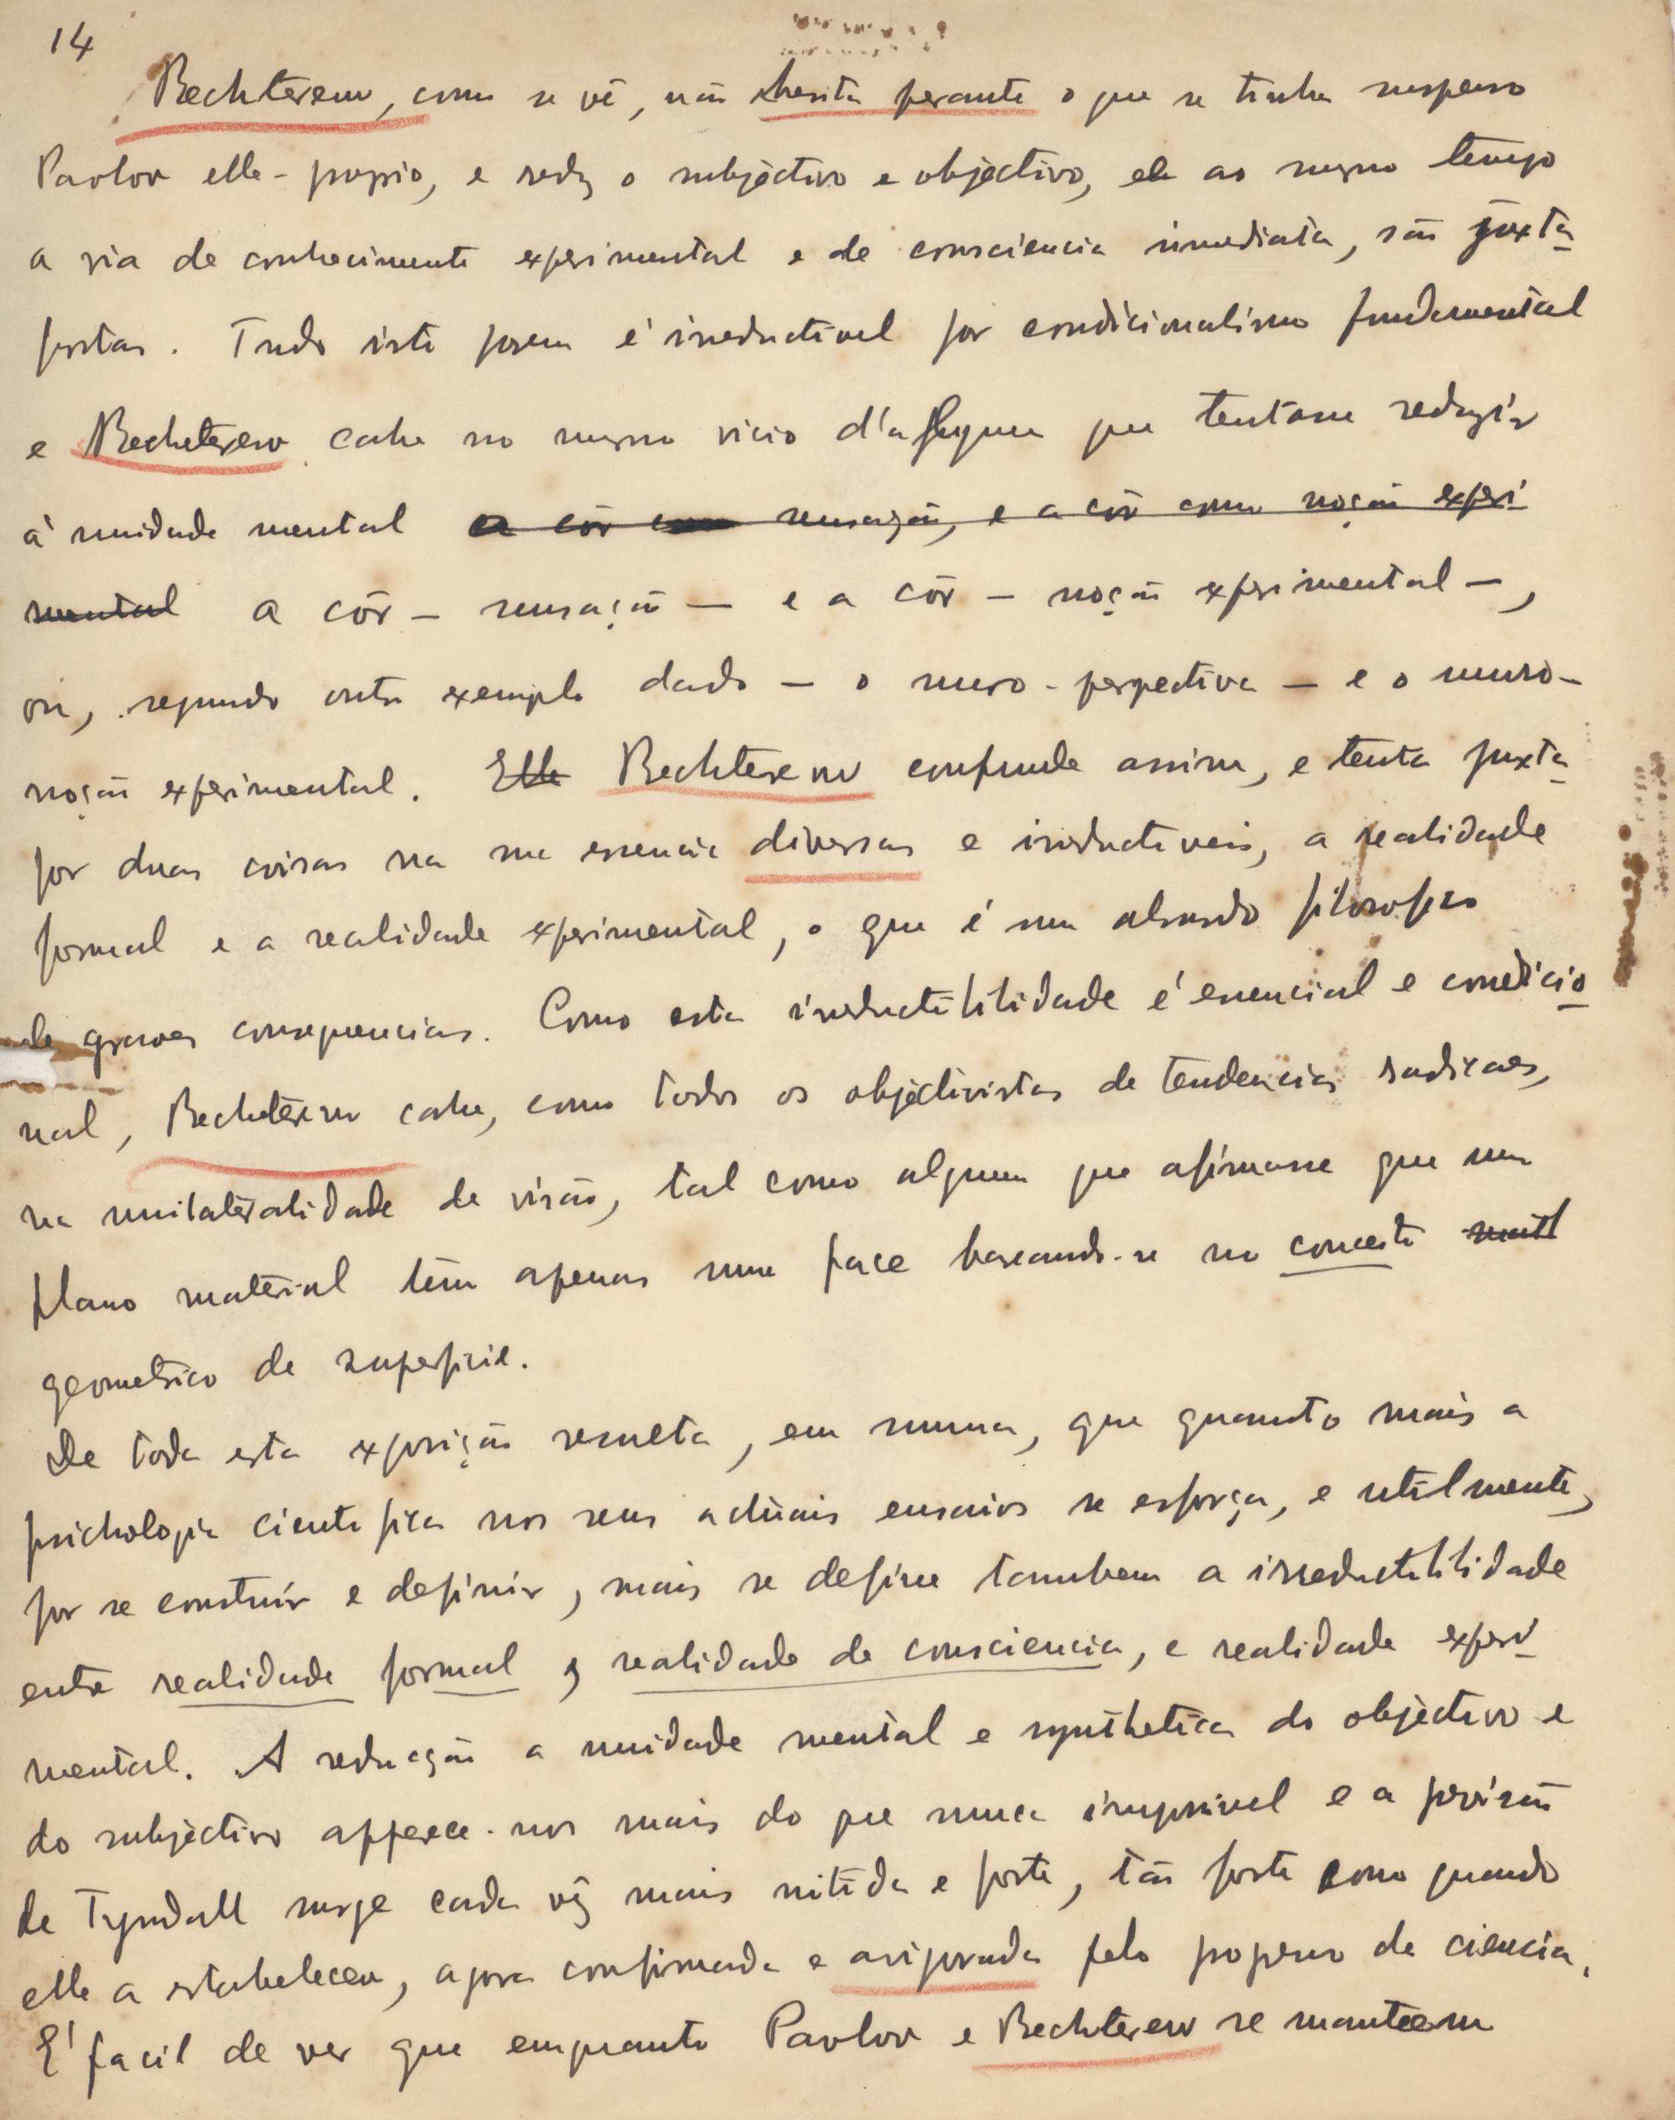 14
Bechterew, como se vê, não hesita perante o que se tinha suspenso
Pavlov elle-proprio, e reduz o subjèctivo e objèctivo, ele ao mesmo tempo
a via de conhecimento experimental e de consciencia immediata, são juxta-
postas. Tudo isto porem é irreductivel por condicionalismo fundamental
e Bechterew cahe no mesmo vicio d'alguem que tentasse reduzir
á unidade mental a côr como sensação, e a côr como noção experi
mental a côr - sensação - e a côr - noção experimental -,
ou, segundo outro exemplo dado - o muro - perspectiva - e o muro -
noção experimental. Elle Bechterew confunde assim, e tenta juxta-
por duas coisas na sua essencia diversas e irreductiveis, a realidade
formal e a realidade experimental, o que é um absurdo filosofico
de graves consequencias. Como esta irreductibilidade é essencial e condicio-
nal, Bechterew cahe, como todos os objèctivistas de tendencias radicaes,
na unilateralidade de visão, tal como alguem que afirmasse que um
plano material têm apenas uma face baseando-se no conceito
geometrico de superficie.
De toda esta exposição resulta, em summa, que quanto mais a
psichologia cientifica nos seus actuais ensaios se esforça, e utilmente,
por se construir e definir, mais se define tambem a irreductibilidade
entre realidade formal, realidade de consciencia, e realidade experi-
mental. A reducção a unidade mental e synthetica do objèctivo e
do subjèctivo apparece-nos mais do que nunca impossivel e a previsão
de Tyndall surge cada vêz mais nitida e forte, tão forte como quando
elle a estabeleceu, agora confirmada e avigorada pelo progresso da ciencia.
E' facil de ver que emquanto Pavlov e Bechterew se manteem